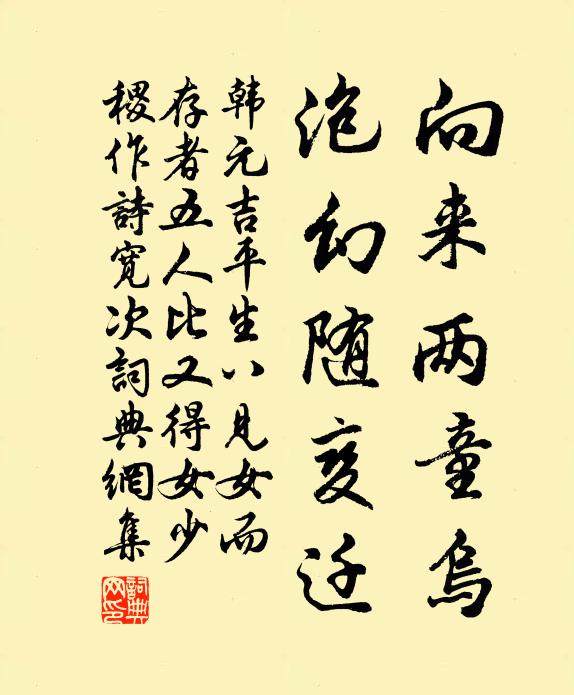 向来两童乌
泡幻随变迁
韩元吉平生八见女而
存者五人比又得女少
稷作詩宽次詞典網集
詞典網印